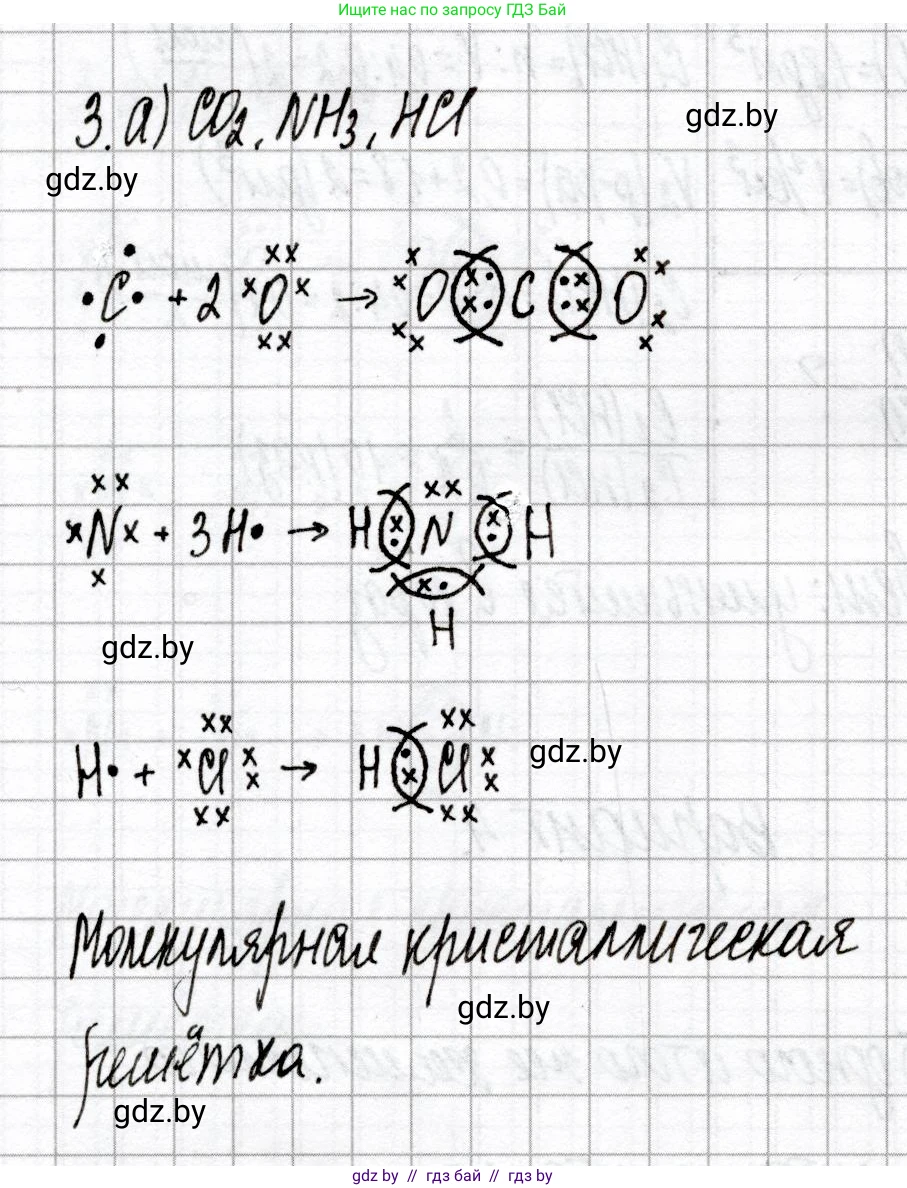 Ищите нас по запросу ГДЗ Бай
3. а) CO2, NH3, HCl
gdz.by
gdz.by
C + 2 O → O C O
N + 3 H → H N H
H
gdz.by
H + Cl → H Cl
gdz.by
Молекулярная кристаллическая
gdz.by
решётка.
gdz.by
gdz.by // гдз бай // гдз by